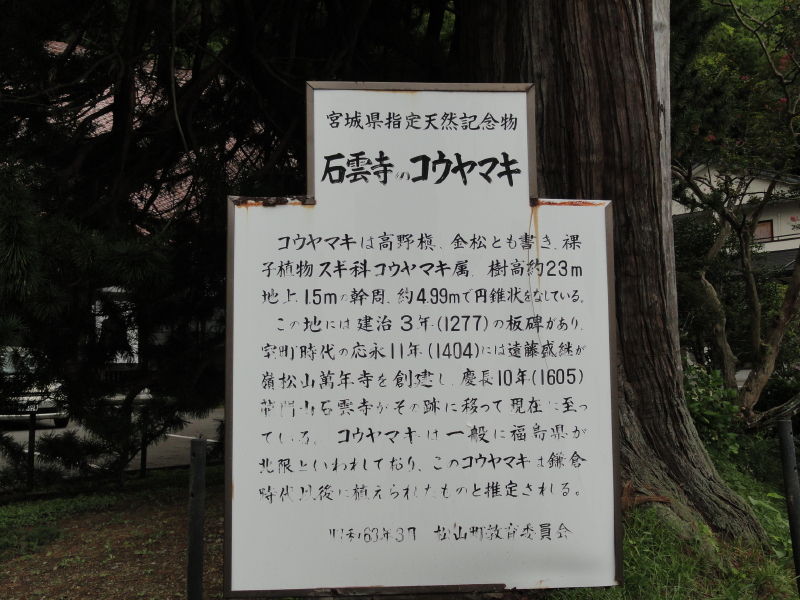 宮城県指定天然記念物
石雲寺のコウヤマキ
コウヤマキは高野槇、金松とも書き、裸
子植物スギ科コウヤマキ属、樹高約23m
地上1.5mの幹周、約4.99mで円錐状をなしている。
この地には建治3年(1277)の板碑があり、
室町時代の応永11年(1404)には遠藤盛継が
嶺松山萬年寺を創建し、慶長10年(1605)
龍門山石雲寺がその跡に移って現在に至っ
ている。コウヤマキは一般に福島県が
北限といわれており、このコウヤマキは鎌倉
時代以後に植えられたものと推定される。
昭和63年3月 松山町教育委員会